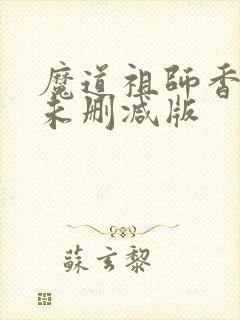 魔道祖師香
未删减版
蘇玄黎